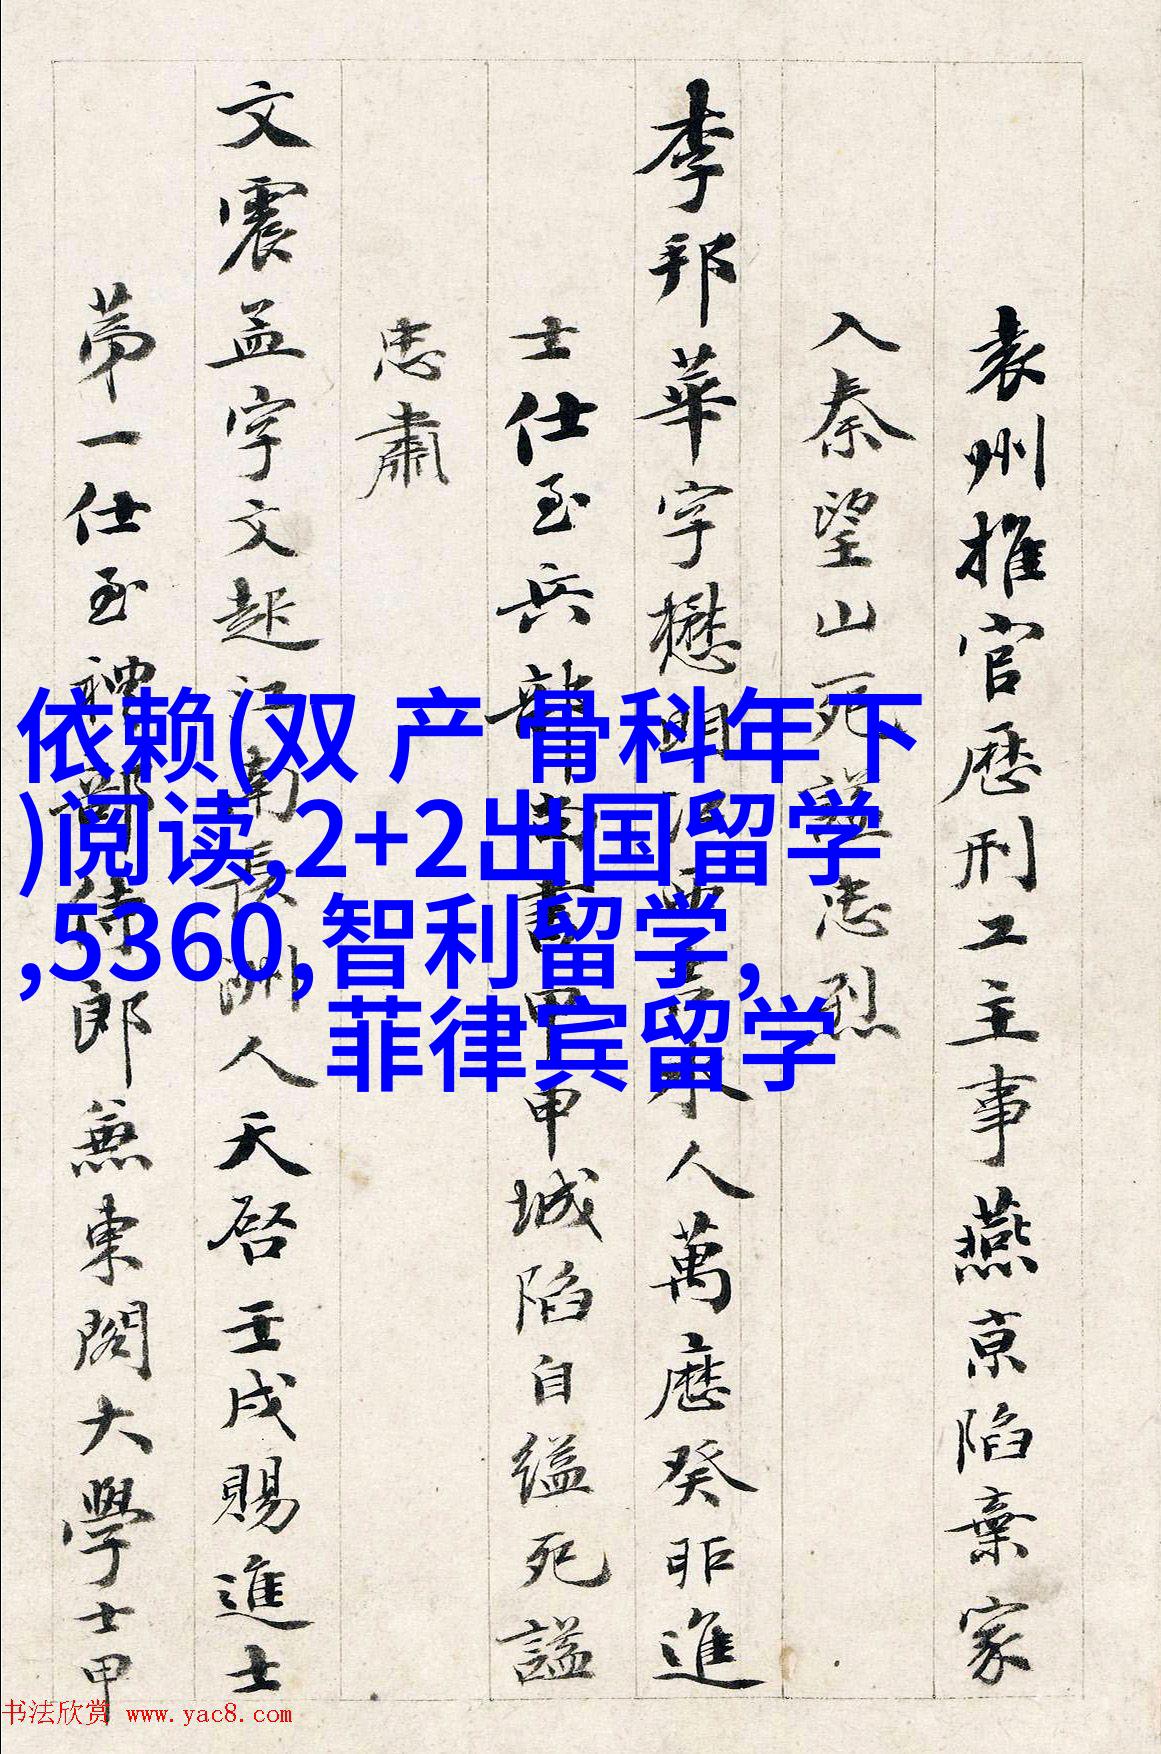 袁州推官歷刑工主事燕京陷棄家
入秦望山死諡忠烈
李邦華字懋明江西吉水人萬曆癸丑進
士仕至兵部尚書甲申城陷自縊死謚
忠肅
文震孟字文起江南長洲人天啓壬戌賜進士
第一仕至禮部侍郎兼東閣大學士甲
依赖(双 产 骨科年下
)阅读,2+2出国留学
,5360,智利留学,
菲律宾留学
书法欣赏 www.yac8.com